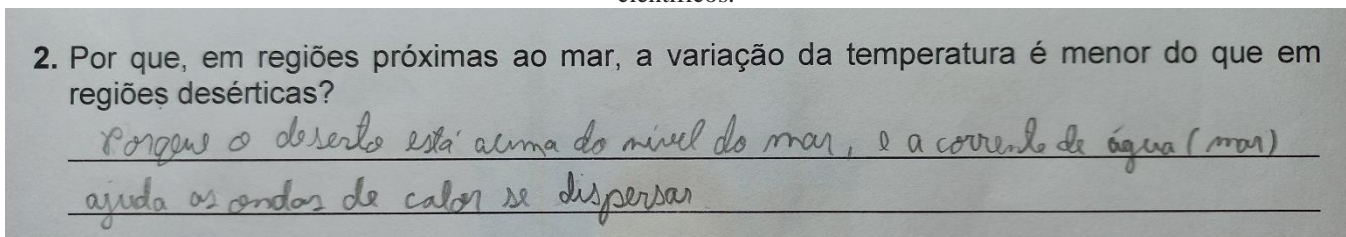 científicos.
2. Por que, em regiões próximas ao mar, a variação da temperatura é menor do que em
regiões desérticas?
Porque o deserto está acima do nível do mar, e a corrente de água (mar)
ajuda as ondas de calor se dispersar